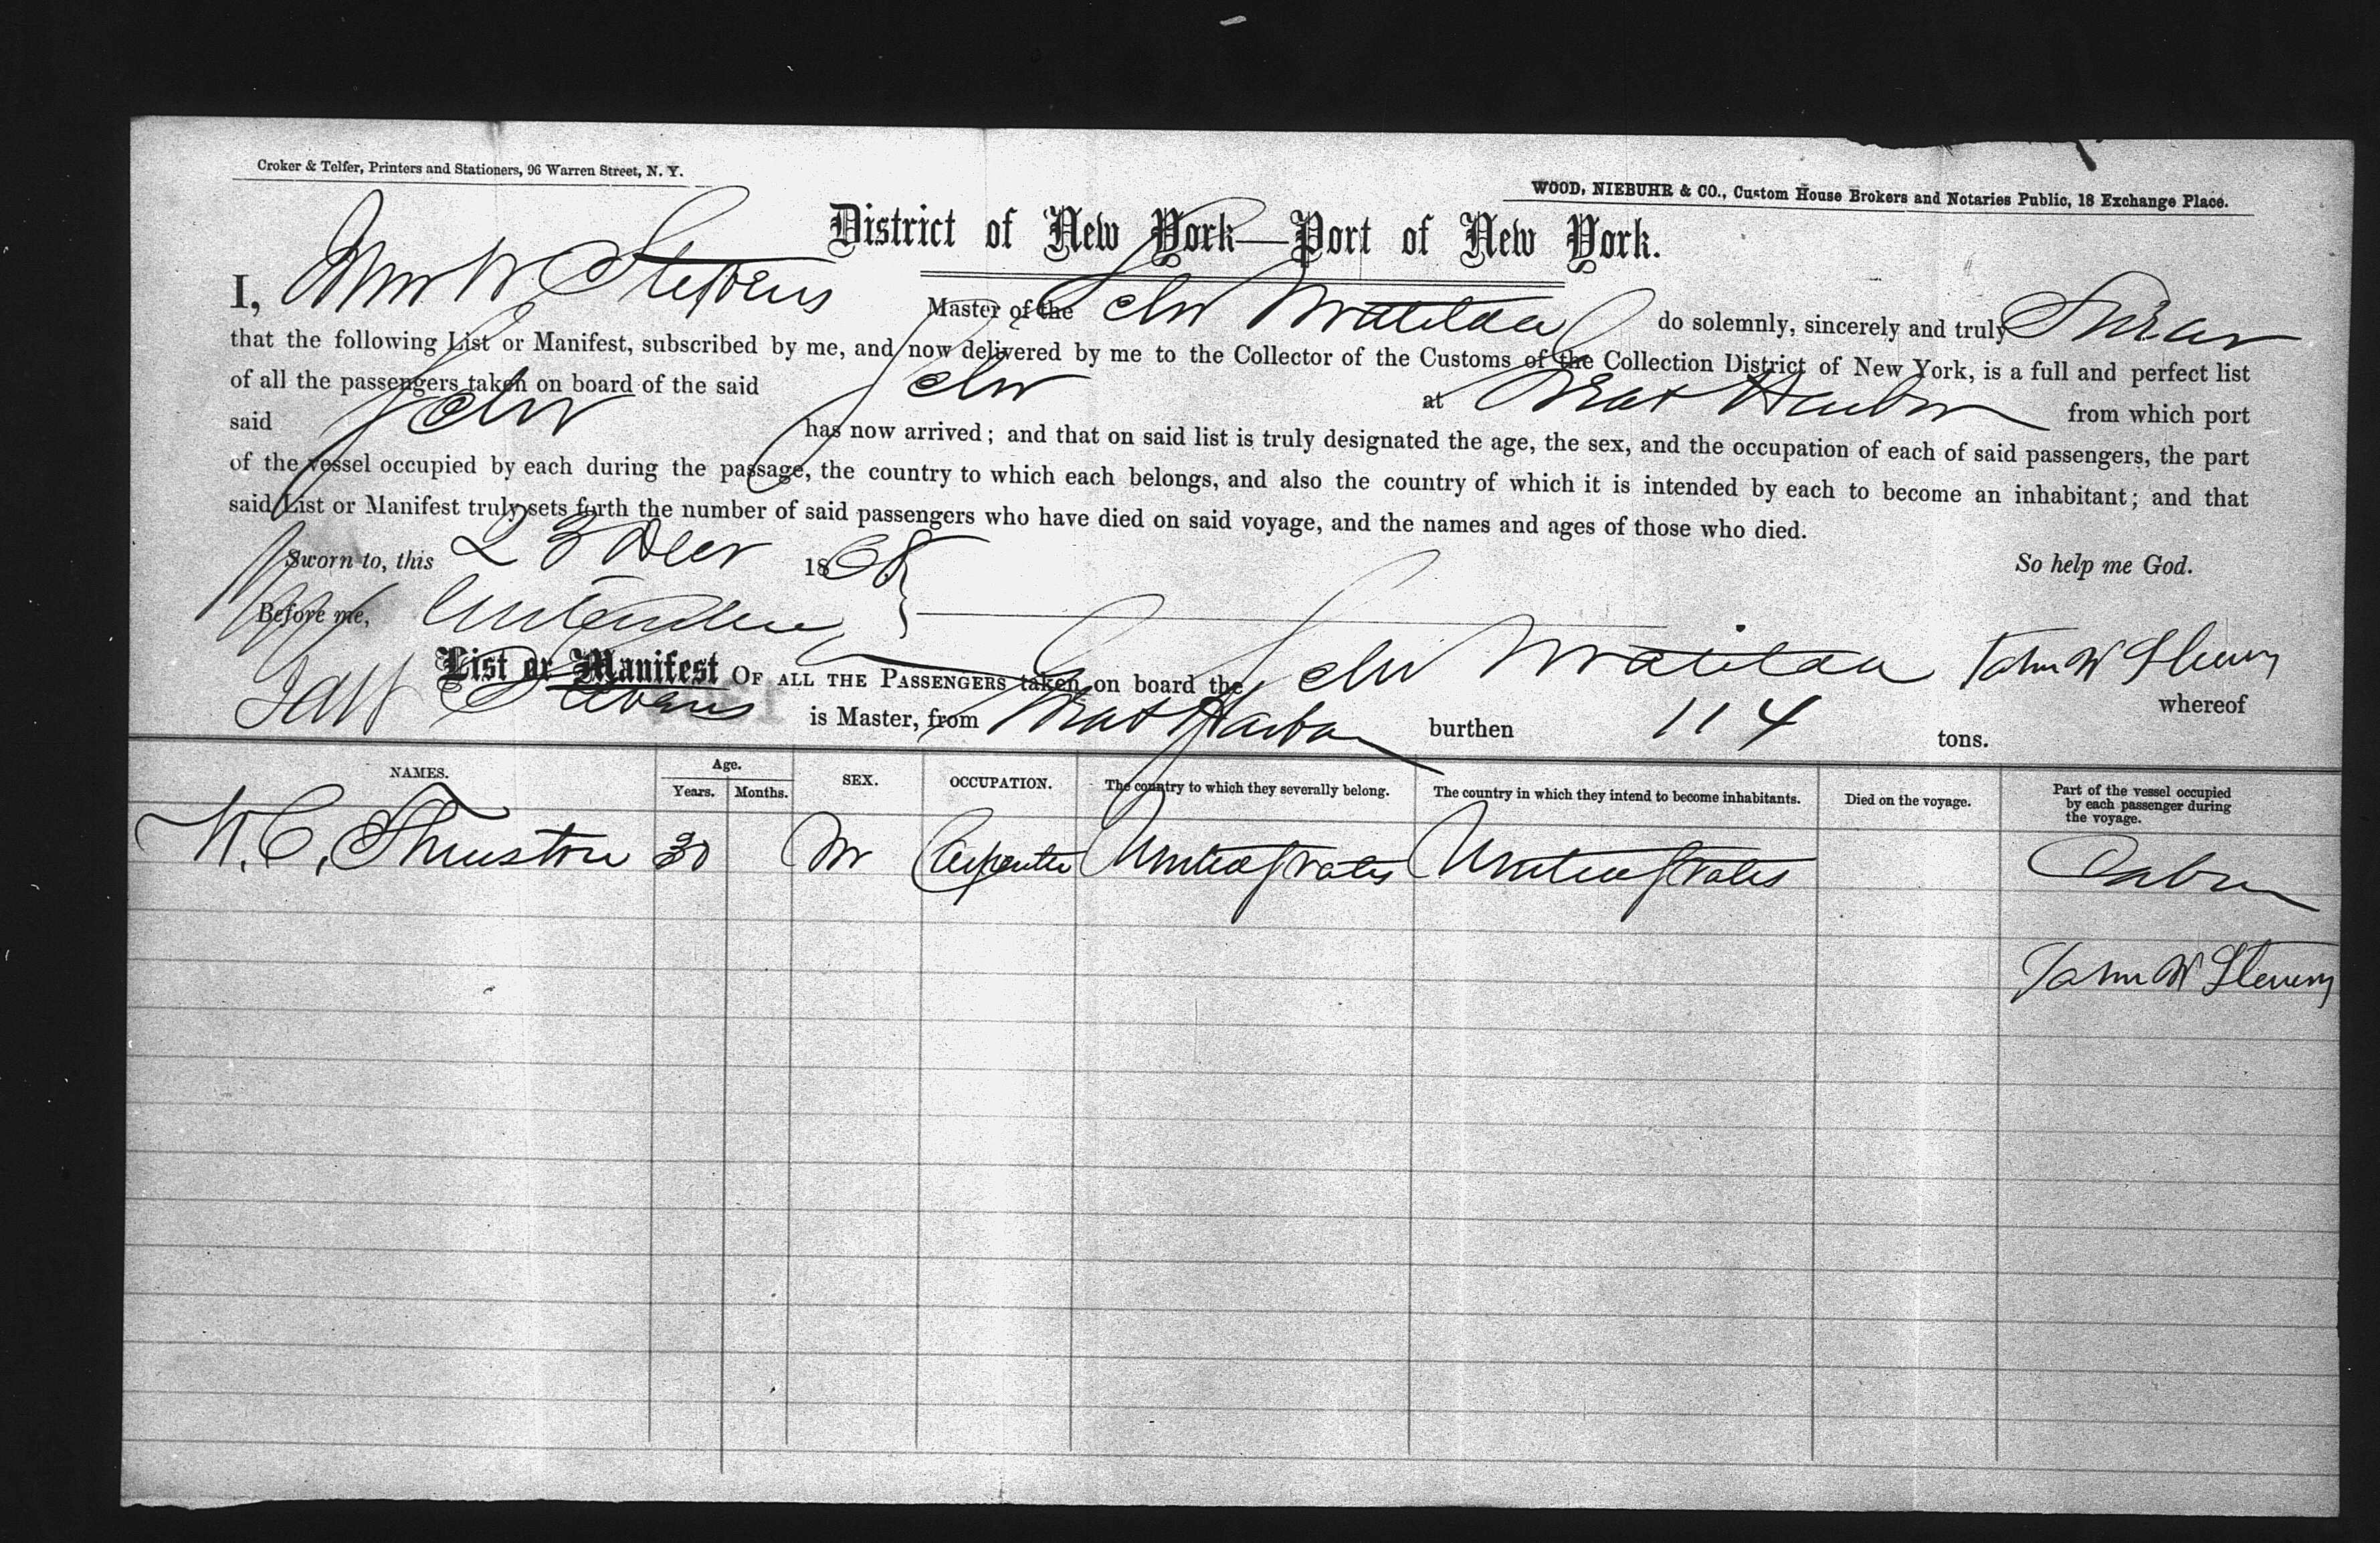 Croker & Telfer, Printers and Stationers, 96 Warren Street, N. Y.
WOOD, NIEBUHR & CO., Custom House Brokers and Notaries Public, 18 Exchange Place.
District of New York—Port of New York.
I, Jno W Stevens Master of the Schr Matilda do solemnly, sincerely and truly Swear
that the following List or Manifest, subscribed by me, and now delivered by me to the Collector of the Customs of the Collection District of New York, is a full and perfect list
of all the passengers taken on board of the said Schr at Harbor from which port
said Schr has now arrived; and that on said list is truly designated the age, the sex, and the occupation of each of said passengers, the part
of the vessel occupied by each during the passage, the country to which each belongs, and also the country of which it is intended by each to become an inhabitant; and that
said List or Manifest truly sets forth the number of said passengers who have died on said voyage, and the names and ages of those who died.
Sworn to, this 23 Decr 1868 So help me God.
Before me,
List or Manifest OF ALL THE PASSENGERS taken on board the Schr Matilda John W Stevens
Stevens is Master, from Harbor burthen 114 tons. whereof
NAMES. Age. Years. Months. SEX. OCCUPATION. The country to which they severally belong. The country in which they intend to become inhabitants. Died on the voyage. Part of the vessel occupied by each passenger during the voyage.
W. C. Thurston 30 M Carpenter United States United States Cabin
John W Stevens